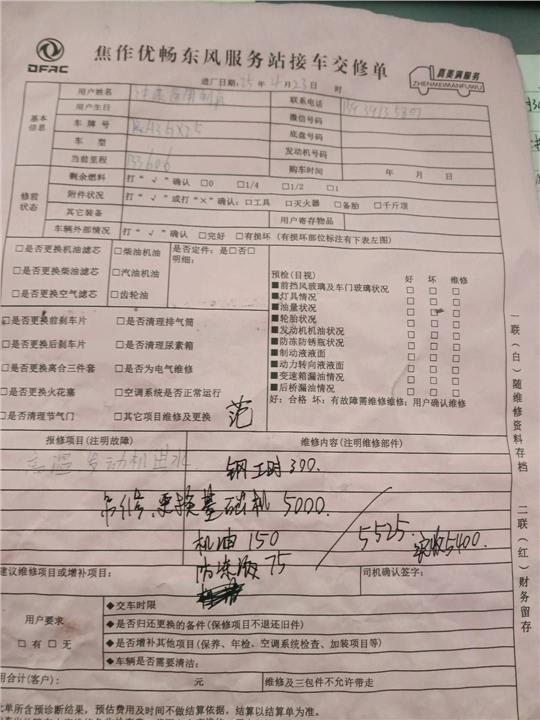 DFAC
焦作优畅东风服务站接车交修单
真美满服务
ZHENMEIMANFUWU
进厂日期:25年4月23日 时
基本信息
用户姓名
联系电话
用户生日
微信号码
车牌号
底盘号码
车 型
发动机号码
当前里程 133606
购车时间 年 月 日
修前状态
剩余燃料 打“√”确认 □0 □1/4 □1/2 □1
附件状况 打“√”或打“×”确认:□工具 □灭火器 □备胎 □千斤顶
其它装备
用户寄存物品
车辆外部情况 打“√”确认 □完好 □有损坏(有损坏部位标注有下表左图)
□是否更换机油滤芯 □柴油机油 是否定件:是□否□
明细:
□是否更换柴油滤芯 □汽油机油
□是否更换空气滤芯 □齿轮油
预检(目视) 好 坏 维修
■前挡风玻璃及车门玻璃状况 □ □ □
■灯具情况 □ □ □
■油量状况 □ □ □
■轮胎状况 □ □ □
■发动机机油状况 □ □ □
■防冻防锈瓶状况 □ □ □
■制动液液面 □ □ □
■动力转向液液面 □ □ □
■变速箱漏油情况 □ □ □
■后桥漏油情况 □ □ □
好:合格 坏:有故障需维修维修:用户确认维修
□是否更换前刹车片 □是否清理排气筒
□是否更换后刹车片 □是否清理尿素箱
□是否更换离合三件套 □是否为电气维修
□是否更换火花塞 □空调系统是否正常运行
□是否清理节气门 □其它项目维修及更换
范
报修项目(注明故障) 维修内容(注明维修部件)
高温 发动机进水
工时300.
更换基础机 5000.
机油 150
5525. 实收5400.
防冻液 75
建议维修项目或增补项目:
司机确认签字:
用户要求
□有 □无
◆交车时限
◆是否归还更换的备件(保修项目不退还旧件)
◆是否增补其他项目(保养、年检、空调系统检查、加装项目等)
◆车辆是否需要清洁:
用合计(客户): 元 维修及三包件不允许带走
此单所含预诊断结果,预估费用及时间不做结算依据,结算以结算单为准。
一联(白)随维修资料存档
二联(红)财务留存